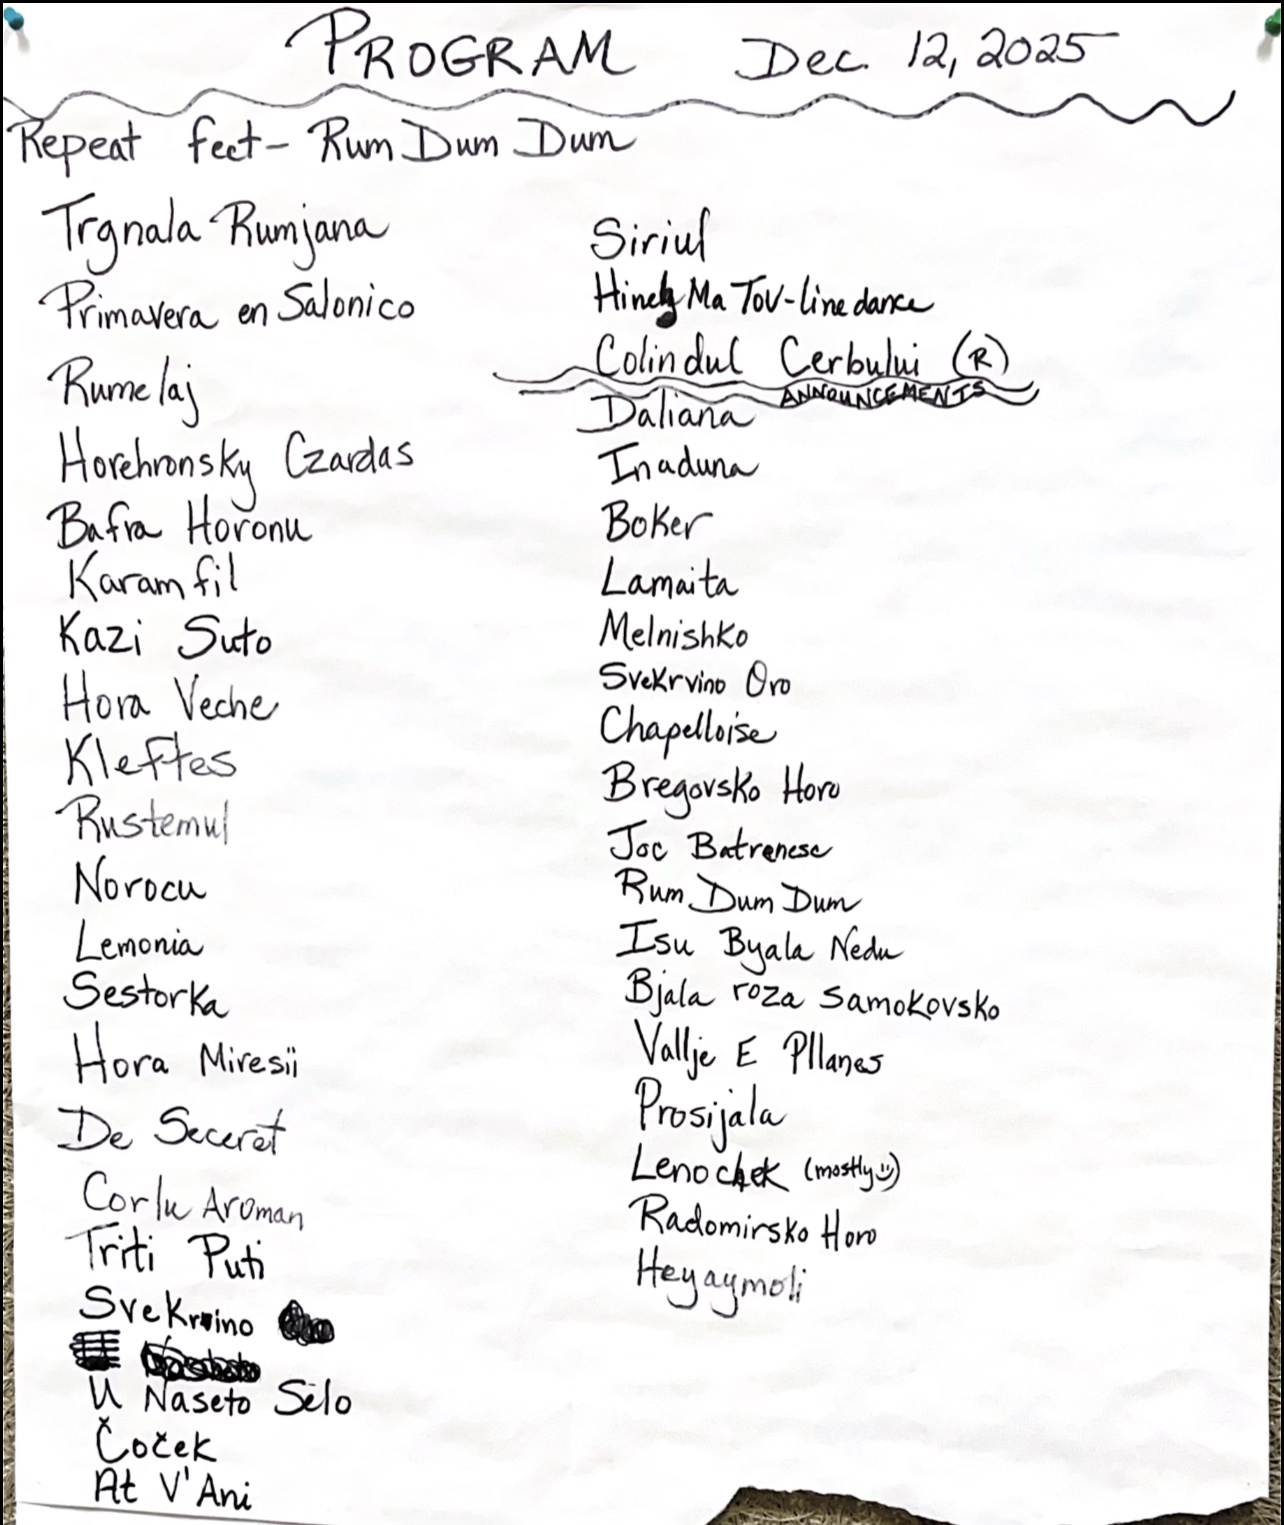 PROGRAM Dec. 12, 2025
Repeat fect- Rum Dum Dum
Trgnala Rumjana
Primavera en Salonico
Rumelaj
Horehronsky Czardas
Bafra Horonu
Karamfil
Kazi Suto
Hora Veche
Kleftes
Rustemul
Norocu
Lemonia
Sestorka
Hora Miresii
De Seceret
Corlu Aroman
Triti Puti
Svekrvino
U Naseto Selo
Čoček
At V'Ani
Siriul
Hineh Ma Tov-line dance
Colindul Cerbului (R)
ANNOUNCEMENTS
Daliana
Inaduna
Boker
Lamaita
Melnishko
Svekrvino Oro
Chapelloise
Bregovsko Horo
Joc Batrenesc
Rum Dum Dum
Isu Byala Nedu
Bjala roza Samokovsko
Vallje E Pllanes
Prosijala
Lenochek (mostly☺)
Radomirsko Horo
Heyaymoli